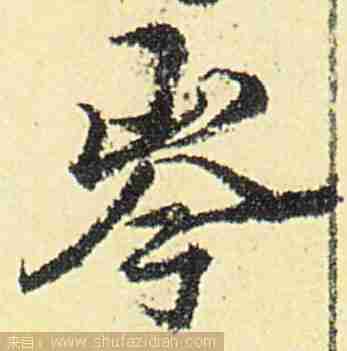 岑
来自：www.shufazidian.com